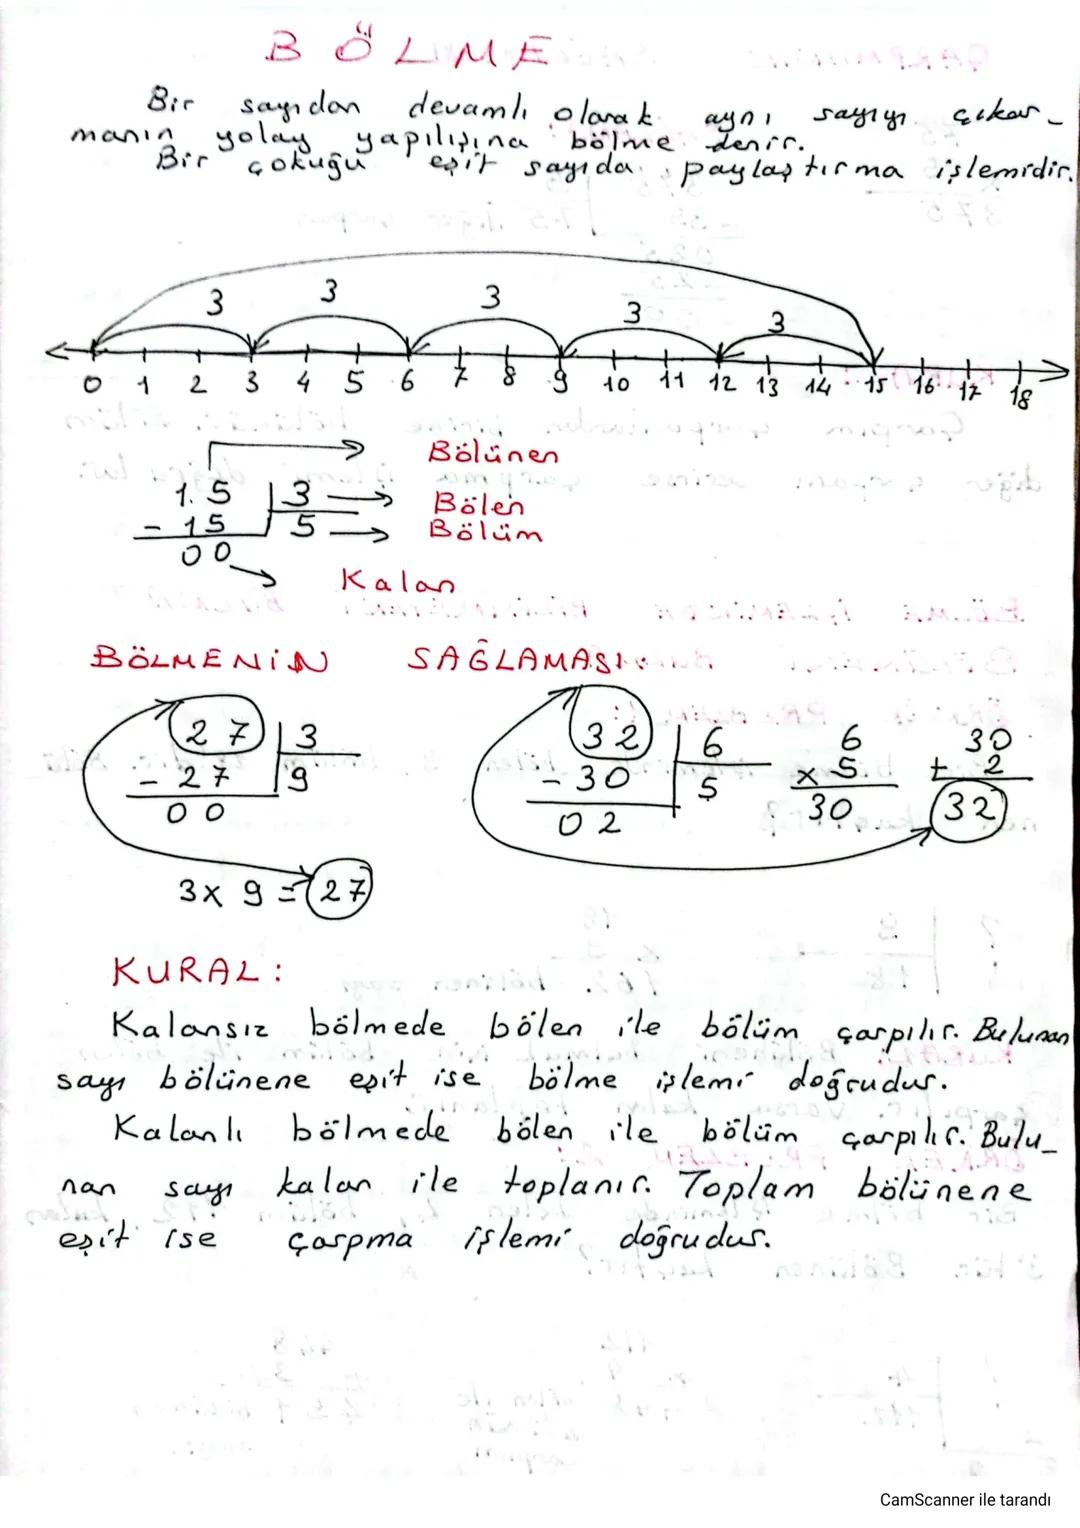 BÖLME
Bir sayıdan devamlı olarak aynı sayıyı çıkar_
manın yolay yapılışına bölme denir.
Bir çokuğu eşit sayıda paylaştırma işlemidir.
3 3 3 3 3
0 1 2 3 4 5 6 7 8 9 10 11 12 13 14 15 16 17 18
Bölünen
1.5 3 Bölen
- 15 5 Bölüm
00
Kalan
BÖLMENİN SAĞLAMASI:
27 3 32 6 6 30
- 27 9 - 30 5 x 5 + 2
00 02 30 32
3 x 9 = 27
KURAL:
Kalansız bölmede bölen ile bölüm çarpılır. Bulunan
sayı bölünene eşit ise bölme işlemi doğrudur.
Kalanlı bölmede bölen ile bölüm çarpılır. Bulu_
nan sayı kalan ile toplanır. Toplam bölünene
eşit ise çarpma işlemi doğrudur.
CamScanner ile tarandı